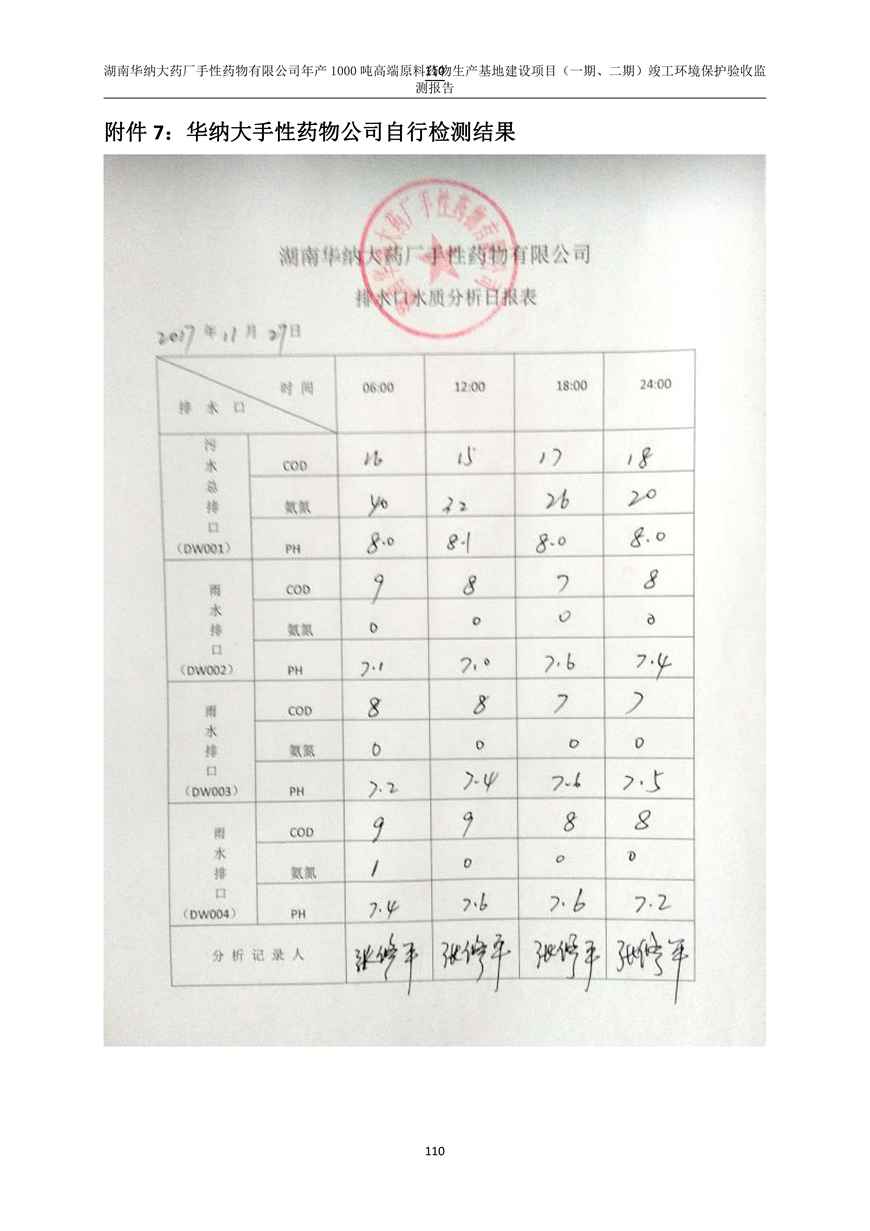 湖南华纳大药厂手性药物有限公司年产 1000 吨高端原料药物生产基地建设项目（一期、二期）竣工环境保护验收监
110
测报告
附件 7：华纳大手性药物公司自行检测结果
湖南华纳大药厂手性药物有限公司
排水口水质分析日报表
2017 年 11 月 29 日
时 间 06:00 12:00 18:00 24:00
排 水 口
污水总排口（DW001）
COD 16 15 17 18
氨氮 40 32 26 20
PH 8.0 8.1 8.0 8.0
雨水排口（DW002）
COD 9 8 7 8
氨氮 0 0 0 0
PH 7.1 7.0 7.6 7.4
雨水排口（DW003）
COD 8 8 7 7
氨氮 0 0 0 0
PH 7.2 7.4 7.6 7.5
雨水排口（DW004）
COD 9 9 8 8
氨氮 1 0 0 0
PH 7.4 7.6 7.6 7.2
分 析 记 录 人 张修平 张修平 张修平 张修平
110